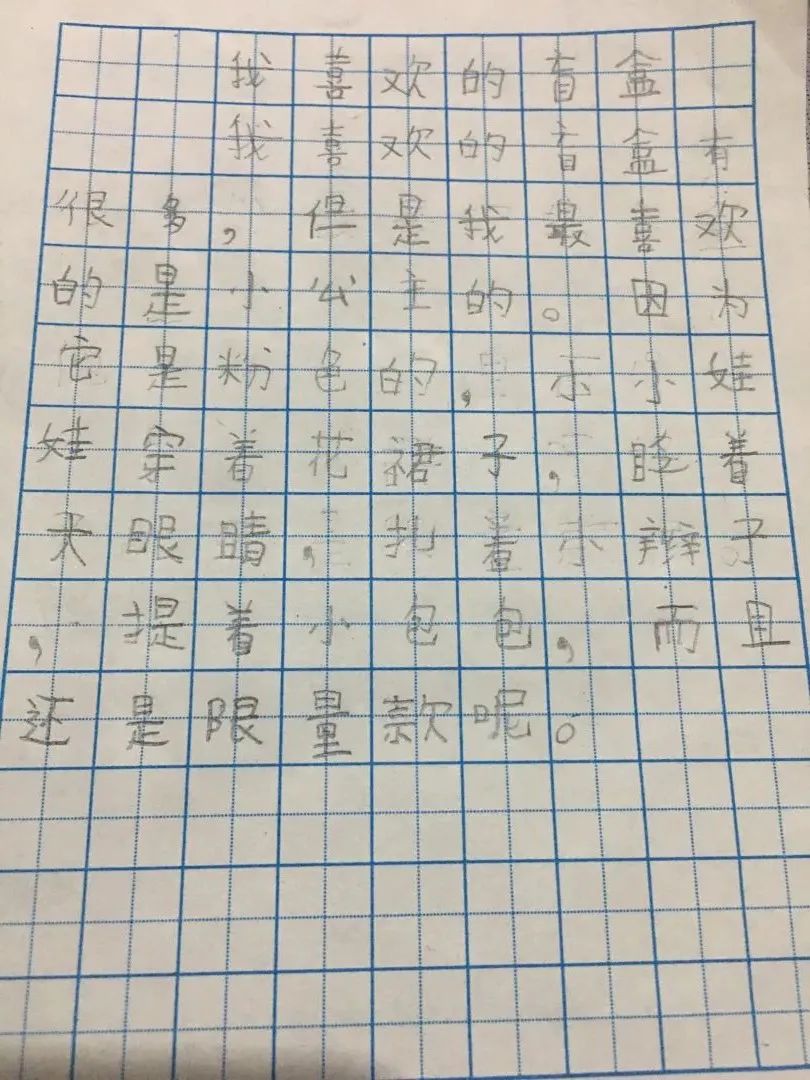 我喜欢的盲盒
我喜欢的盲盒有
很多，但是我最喜欢
的是小公主的。因为
它是粉色的，小娃
娃穿着花裙子，着
大眼睛，扎着辫子
，提着小包包，而且
还是限量款呢。